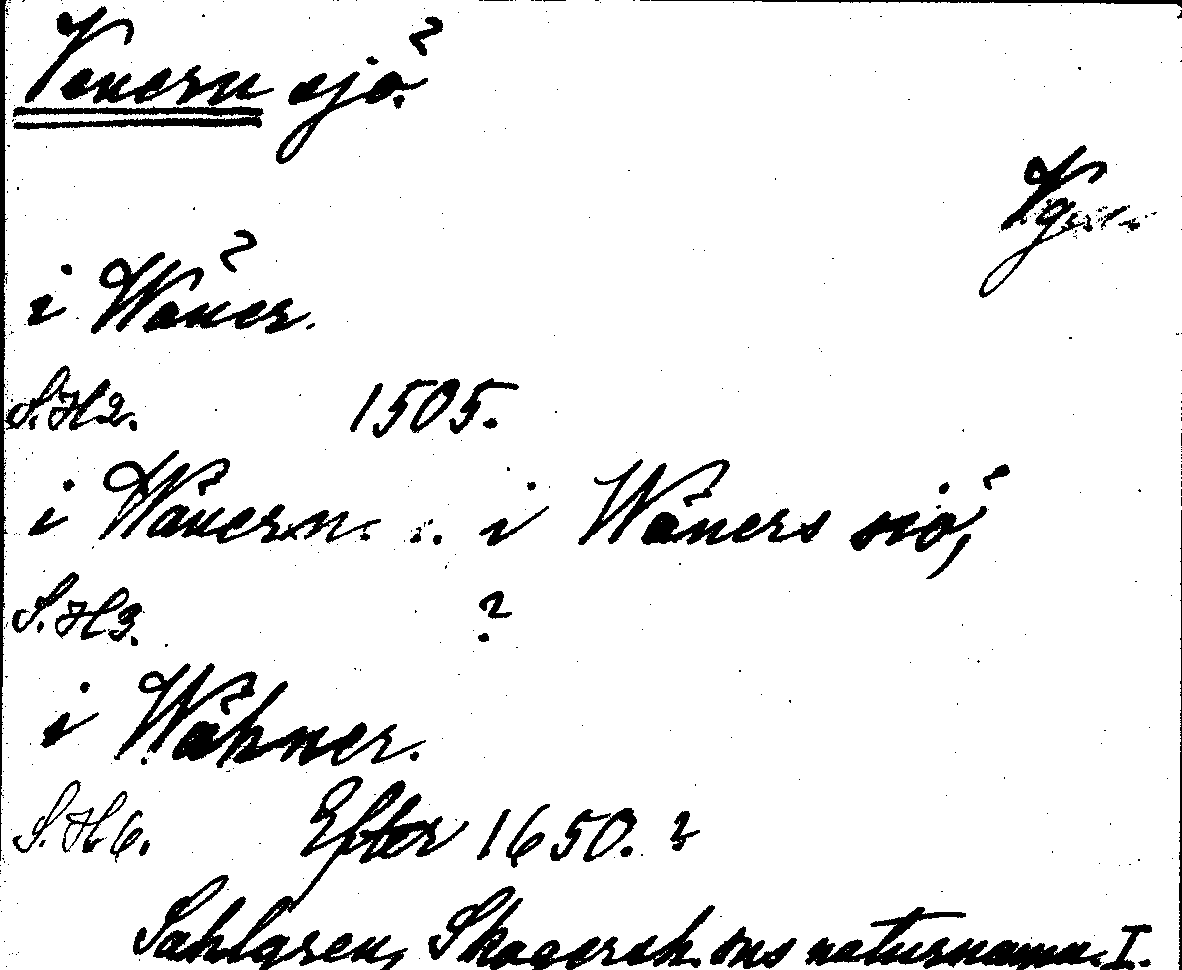 Venern sjö.
Vg
i Wäner.
S.H2. 1505.
i Wänern. .. i Wäners siö,
S.H3. ?
i Wähner.
S.H6. Efter 1650. ?
Sahlgren, Skagersh. sns naturnamn. I.